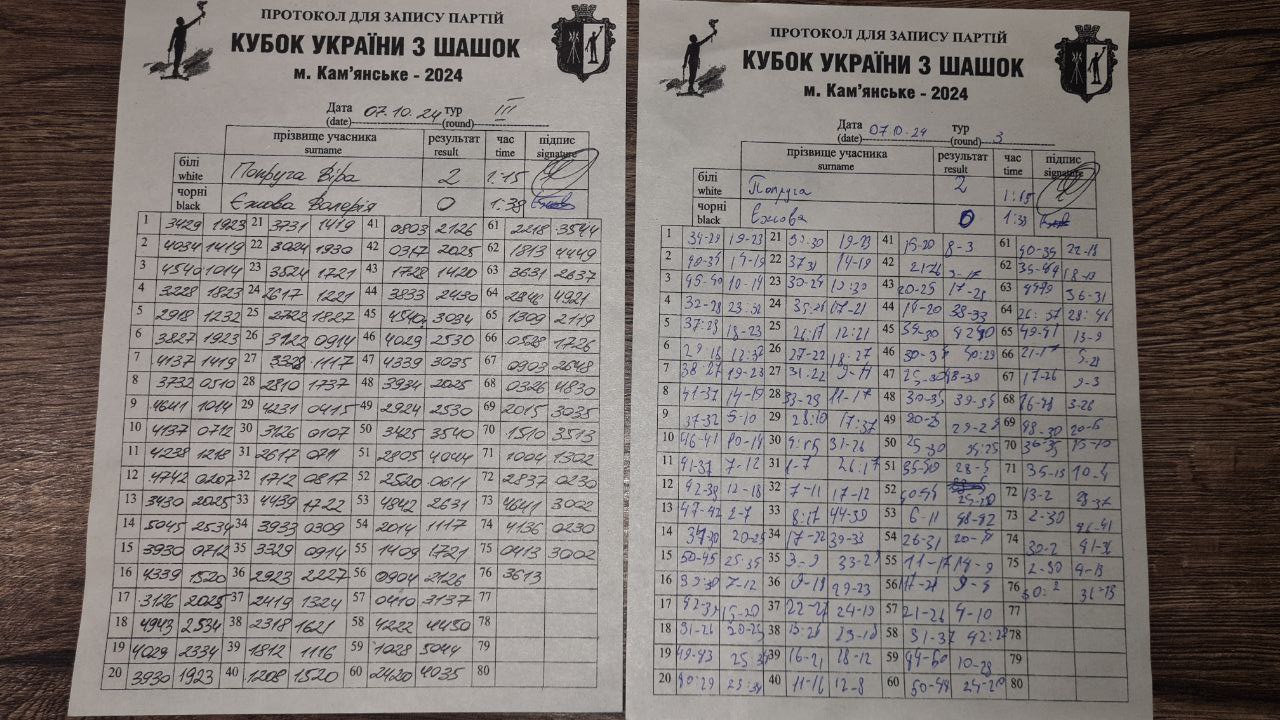 ПРОТОКОЛ ДЛЯ ЗАПИСУ ПАРТІЙ
КУБОК УКРАЇНИ З ШАШОК
м. Кам'янське - 2024
Дата 07.10.24 тур III
(date) (round)
прізвище учасника результат час підпис
surname result time signature
білі Попруга Віра 2 1:15
white
чорні Єжова Валерія 0 1:38
black
1 3429 1923 21 3731 1419 41 0803 2126 61 2218 3544
2 4034 1419 22 3024 1930 42 0317 2025 62 1813 4449
3 4540 1014 23 3524 1221 43 1728 1420 63 3631 2637
4 3228 1823 24 2617 1221 44 3833 2430 64 2846 4921
5 2918 1232 25 2722 1827 45 4540 3034 65 1309 2119
6 3827 1923 26 3122 0914 46 4029 2530 66 0528 1726
7 4137 1419 27 3328 1117 47 4339 3035 67 0903 2648
8 3732 0510 28 2810 1737 48 3934 2025 68 0326 4830
9 4641 1014 29 4231 0415 49 2924 2530 69 2015 3035
10 4137 0712 30 3126 0107 50 3425 3540 70 1510 3513
11 4238 1218 31 2617 0711 51 2805 4044 71 1004 1302
12 4742 0207 32 1712 0817 52 2520 0611 72 2837 0230
13 3430 2025 33 4439 1722 53 4842 2631 73 4641 3002
14 5045 2534 34 3933 0309 54 2014 1117 74 4136 0230
15 3930 0712 35 3329 0914 55 1409 1721 75 0413 3002
16 4339 1520 36 2923 2227 56 0904 2126 76 3613
17 3126 2025 37 2419 1324 57 0410 3137 77
18 4943 2534 38 2318 1621 58 4222 4450 78
19 4029 2334 39 1812 1116 59 1028 5044 79
20 3930 1923 40 1208 1520 60 2420 4035 80
ПРОТОКОЛ ДЛЯ ЗАПИСУ ПАРТІЙ
КУБОК УКРАЇНИ З ШАШОК
м. Кам'янське - 2024
Дата 07.10.24 тур 3
(date) (round)
прізвище учасника результат час підпис
surname result time signature
білі Попруга 2 1:15
white
чорні Єжова 0 1:38
black
1 34-29 19-23 21 19-23 41 15-20 8-3 61 40-35 22-18
2 40-34 14-19 22 14-19 42 21-26 62 18-13
3 45-40 10-14 23 30-24 43 20-25 17-28 63 36-31
4 32-28 23:32 24 17-21 44 14-20 38-33 64 28:46
5 18-23 25 26:17 12:21 45 65 13-9
6 26 27-22 18:27 46 66
7 38:27 19-23 27 31:22 9-14 47 67 17-26 9-3
8 41-37 14-19 28 11-17 48 30-35 39-34 68 3-26
9 37-32 5-10 29 28:10 17:37 49 20-25 69
10 46-41 10-14 30 31-26 50 25-30 70
11 41-37 7-12 31 1-7 26:17 51 71 10-4
12 12-18 32 7-11 17-12 52 72 13-2 28-37
13 47-42 2-7 33 8:17 44-39 53 6-11 48-42 73 2-30 46-41
14 20-25 34 17-22 39-33 54 26-31 74 41-36
15 50-45 25:34 35 55 11-17 75
16 7-12 36 29-23 56 76
17 15-20 37 24-19 57 21-26 4-10 77
18 31-26 20-25 38 23-18 58 31-37 42:22 78
19 49-43 25:34 39 16-21 18-12 59 44-50 10-28 79
20 40:29 40 11-16 12-8 60 24-20 80